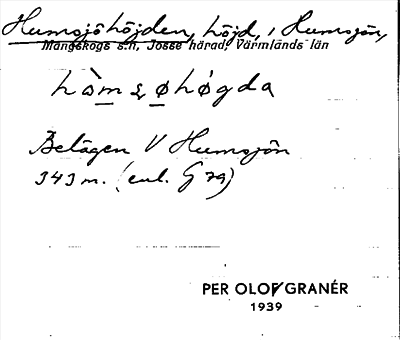 Humsjöhöjden, höjd, i Humsjön,
Mangskogs s:n, Jösse härad, Värmlands län
Belägen V Humsjön
343 m. (enl. G 79)
PER OLOF GRANÉR
1939